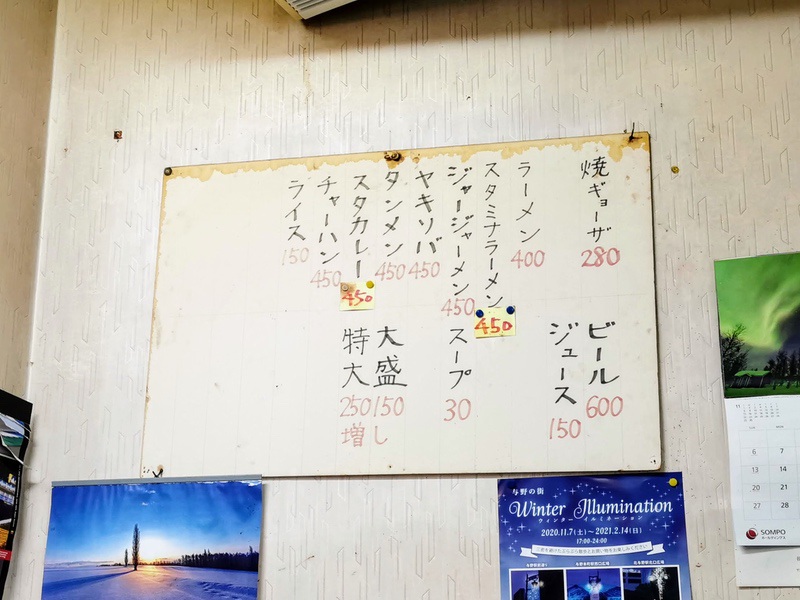 焼ギョーザ
280
ラーメン
400
スタミナラーメン
450
ジャージャーメン
450
ヤキソバ
450
タンメン
450
スタカレー
450
チャーハン
450
ライス
150
ビール
600
ジュース
150
スープ
30
大盛
150
特大
250
増し
与野の街
Winter Illumination
ウィンター イルミネーション
2020.11.7(土)～2021.2.14(日)
17:00-24:00
11
6 7
13 14
20 21
27 28
SOMPO